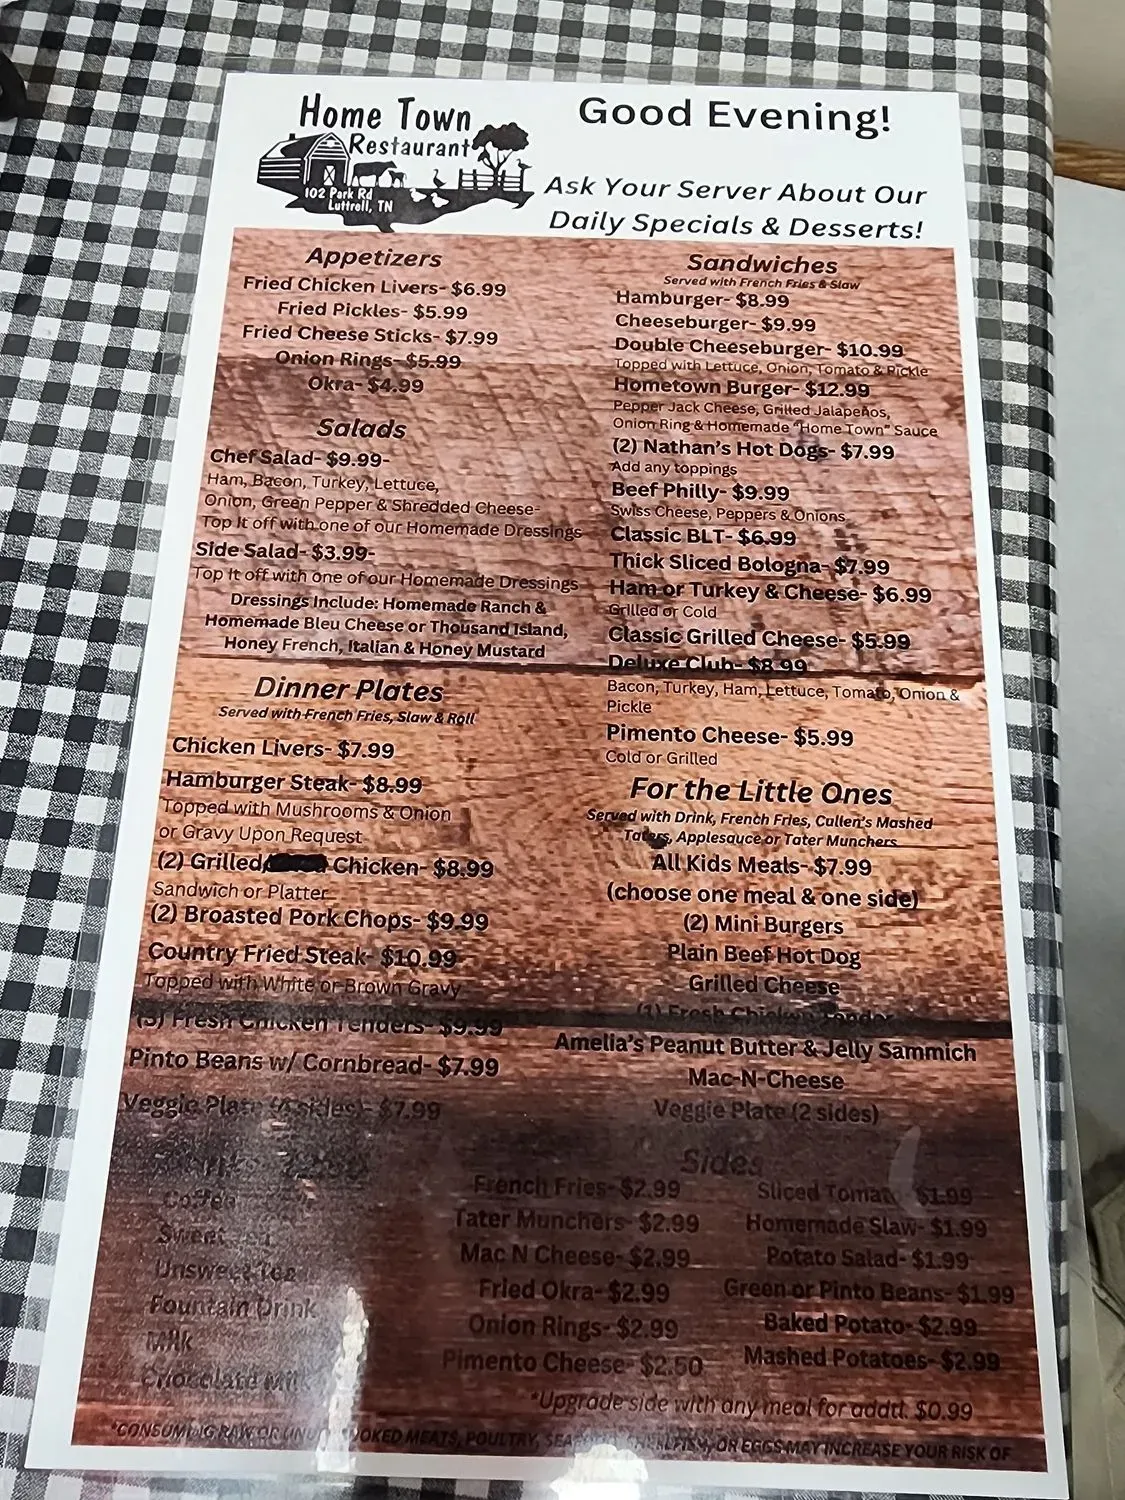 Home Town
Restaurant
102 Park Rd
Luttrell, TN
Good Evening!
Ask Your Server About Our
Daily Specials & Desserts!
Appetizers
Fried Chicken Livers- $6.99
Fried Pickles- $5.99
Fried Cheese Sticks- $7.99
Onion Rings- $5.99
Okra- $4.99
Salads
Chef Salad- $9.99-
Ham, Bacon, Turkey, Lettuce,
Onion, Green Pepper & Shredded Cheese-
Top It off with one of our Homemade Dressings
Side Salad- $3.99-
Top It off with one of our Homemade Dressings
Dressings Include: Homemade Ranch &
Homemade Bleu Cheese or Thousand Island,
Honey French, Italian & Honey Mustard
Dinner Plates
Served with French Fries, Slaw & Roll
Chicken Livers- $7.99
Hamburger Steak- $8.99
Topped with Mushrooms & Onion
or Gravy Upon Request
(2) Grilled/ Chicken- $8.99
Sandwich or Platter
(2) Broasted Pork Chops- $9.99
Country Fried Steak- $10.99
Topped with White or Brown Gravy
(3) Fresh Chicken Tenders- $9.99
Pinto Beans w/ Cornbread- $7.99
Veggie Plate (4 sides)- $7.99
Sandwiches
Served with French Fries & Slaw
Hamburger- $8.99
Cheeseburger- $9.99
Double Cheeseburger- $10.99
Topped with Lettuce, Onion, Tomato & Pickle
Hometown Burger- $12.99
Pepper Jack Cheese, Grilled Jalapeños,
Onion Ring & Homemade "Home Town" Sauce
(2) Nathan's Hot Dogs- $7.99
Add any toppings
Beef Philly- $9.99
Swiss Cheese, Peppers & Onions
Classic BLT- $6.99
Thick Sliced Bologna- $7.99
Ham or Turkey & Cheese- $6.99
Grilled or Cold
Classic Grilled Cheese- $5.99
Deluxe Club- $8.99
Bacon, Turkey, Ham, Lettuce, Tomato, Onion &
Pickle
Pimento Cheese- $5.99
Cold or Grilled
For the Little Ones
Served with Drink, French Fries, Cullen's Mashed
Taters, Applesauce or Tater Munchers
All Kids Meals- $7.99
(choose one meal & one side)
(2) Mini Burgers
Plain Beef Hot Dog
Grilled Cheese
(1) Fresh Chicken Tender
Amelia's Peanut Butter & Jelly Sammich
Mac-N-Cheese
Veggie Plate (2 sides)
Coffee
Sweet Tea
Unsweet Tea
Fountain Drink
Milk
Chocolate Milk
Sides
French Fries- $2.99
Tater Munchers- $2.99
Mac N Cheese- $2.99
Fried Okra- $2.99
Onion Rings- $2.99
Pimento Cheese- $2.50
Sliced Tomato $1.99
Homemade Slaw- $1.99
Potato Salad- $1.99
Green or Pinto Beans- $1.99
Baked Potato- $2.99
Mashed Potatoes- $2.99
*Upgrade side with any meal for addtl. $0.99
*CONSUMING RAW OR UNDERCOOKED MEATS, POULTRY, SEAFOOD, SHELLFISH, OR EGGS MAY INCREASE YOUR RISK OF